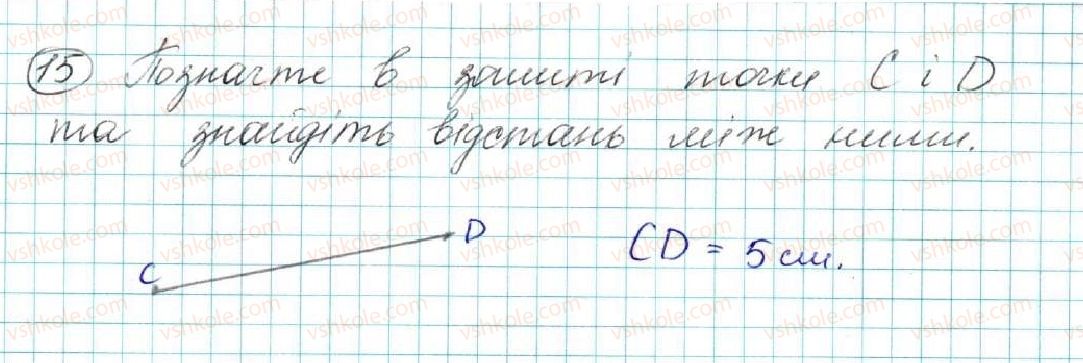 15 Позначте в зошиті точки C і D
та знайдіть відстань між ними.
D
CD = 5 см.
C